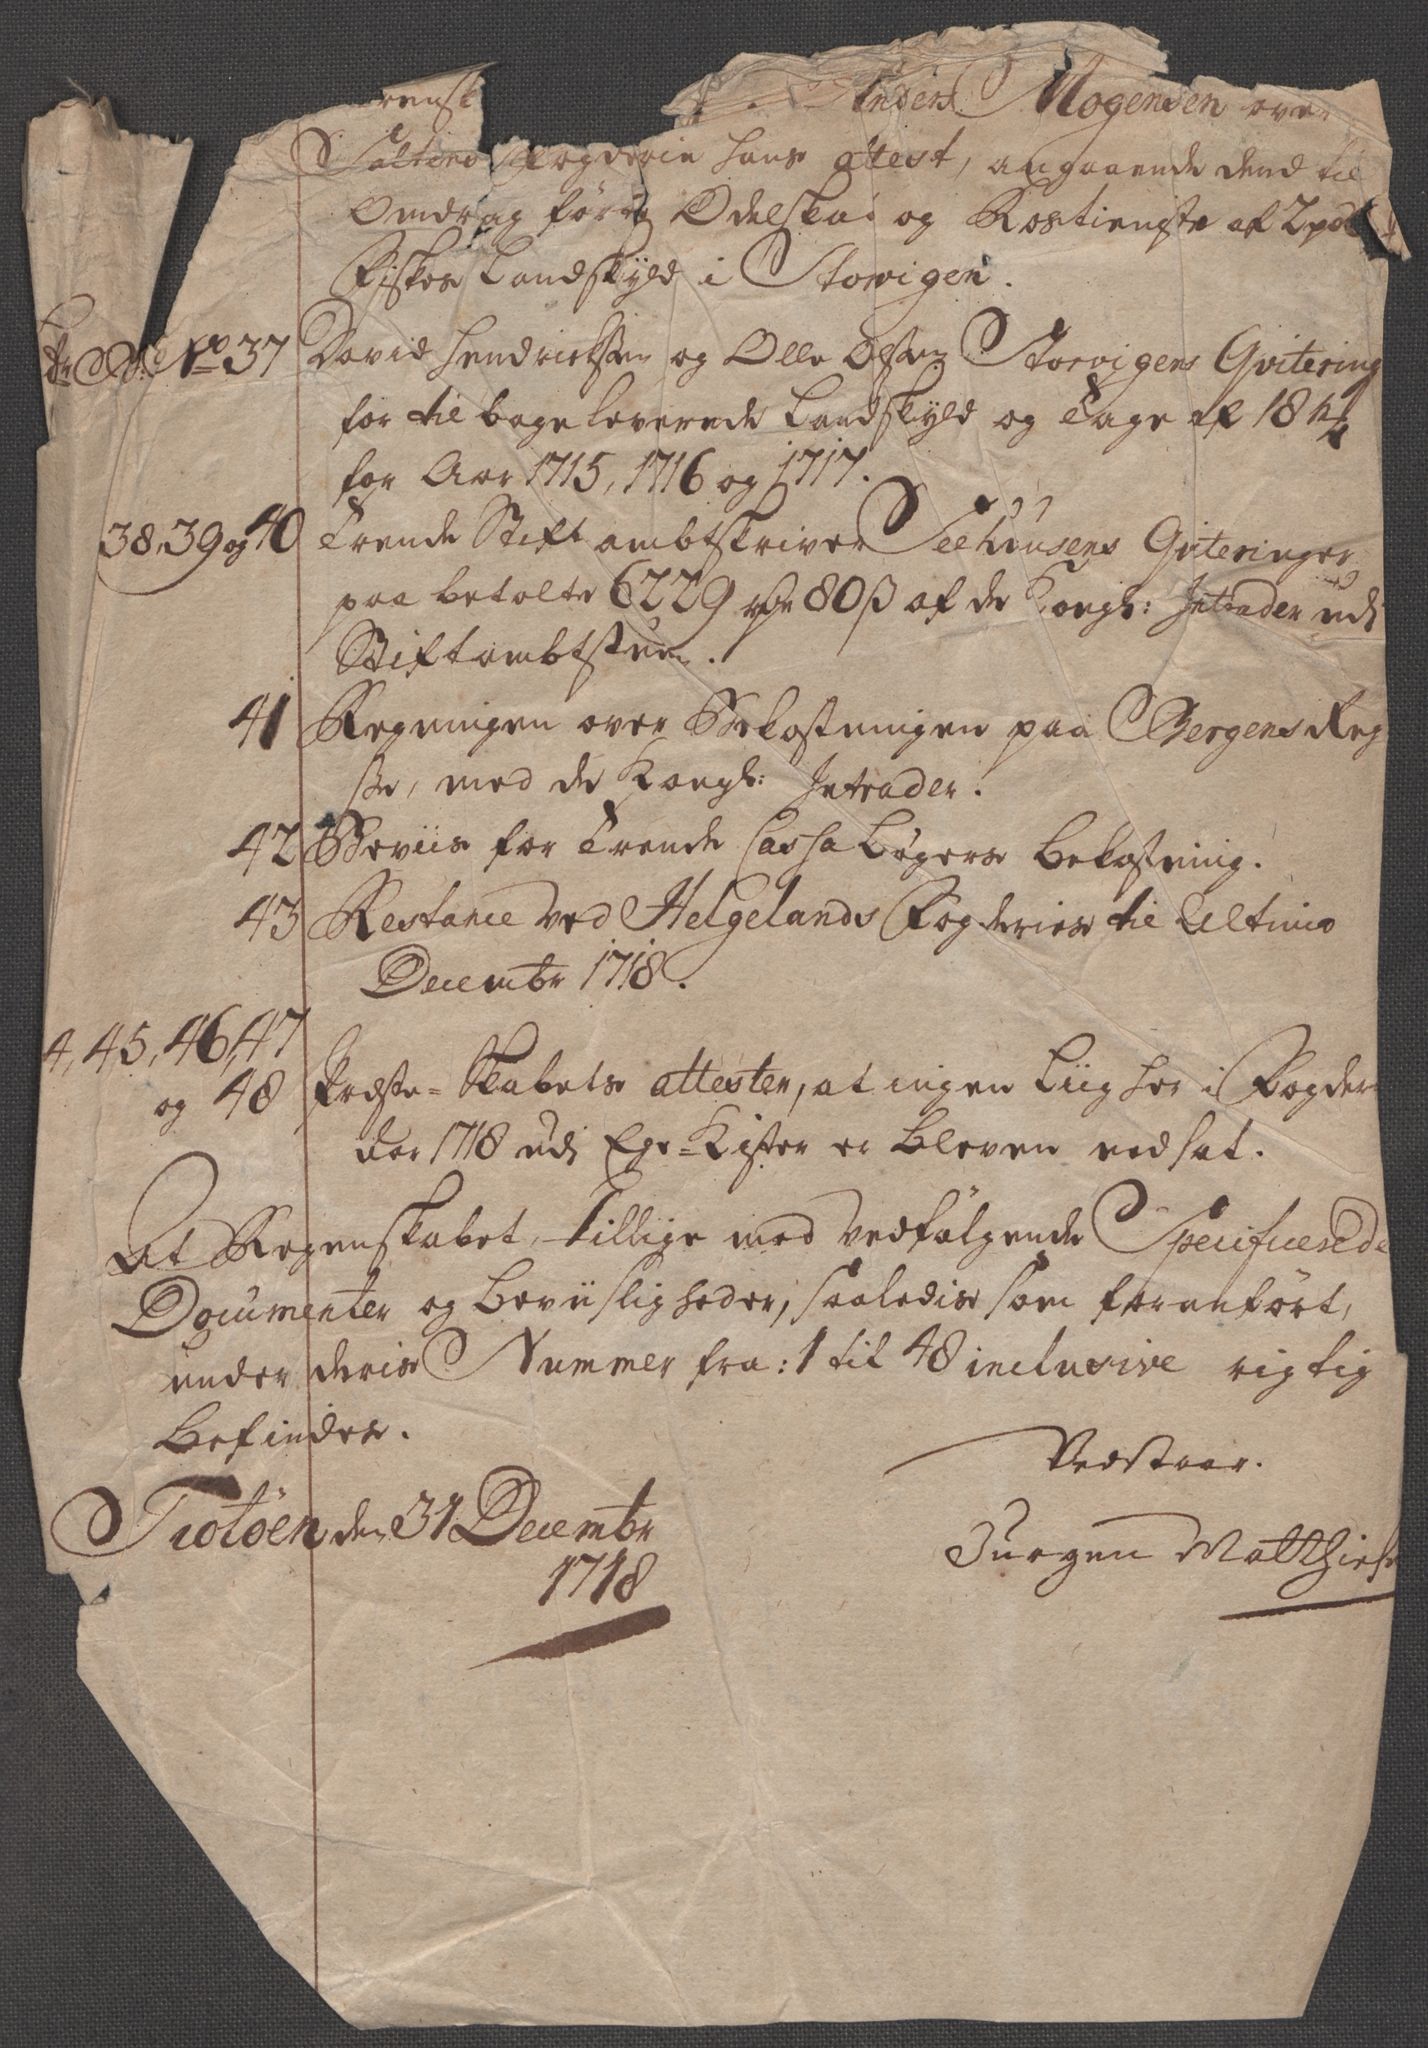 Anders Mogensen over
Saltens Fogderie hans attest, angaaende dend til
Omdrag førte Odelskat og Rostieniste af 2 pd
Fiskes Landskyld i Storvigen.
No 37 David Hendrichsen og Olle Olsen Storvigens Qvitering
for tilbageleverede Landskyld og Tage af 18 mk
for Aar 1715, 1716 og 1717.
38, 39 og 40 Trende Stiftambtskriver Seehusens Qviteringer
paa betalte 6229 rdr 80 ß af de Kongl: Intrader udj
Stiftambtstuen.
41 Regningen over Bekostningen paa Bergens Rej
se, med de Kongl: Intrader.
42 Beviis for Trende Cassa Bøgers Bekostning.
43 Restance ved Helgelands Fogderie til Ultimo
Decembr 1718.
4, 45, 46, 47
og 48 Præste-Skabets attester, at ingen Liig her i Fogder
Aar 1718 udj Ege-Kister er bleven nedsat.
At Regenskabet, tillige med Vedfølgende Specificerede
Documenter og Beviisligheder, saaledis som for anført,
under deris Nummer fra: 1 til 48 inclusive rigtig
Befindes.
Vedstaar.
Tiøtøen den 31 Decembr
1718
Jurgen Matthies